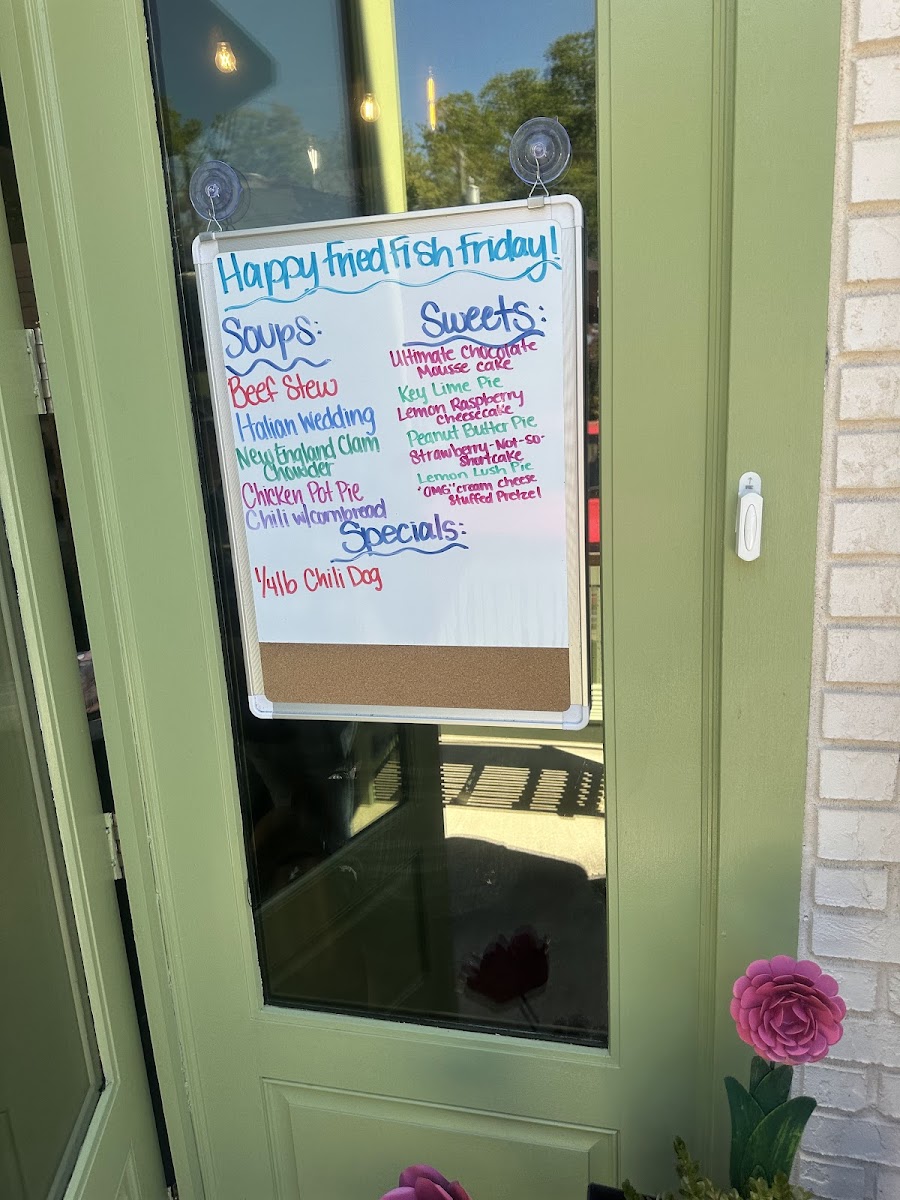 Happy Fried Fish Friday!
Soups:
Beef Stew
Italian Wedding
New England Clam
Chowder
Chicken Pot Pie
Chili w/cornbread
Sweets:
Ultimate Chocolate
Mousse cake
Key Lime Pie
Lemon Raspberry
Cheesecake
Peanut Butter Pie
Strawberry-Not-so-
Shortcake
Lemon Lush Pie
"OMG" cream cheese
Stuffed Pretzel
Specials:
1/4lb Chili Dog